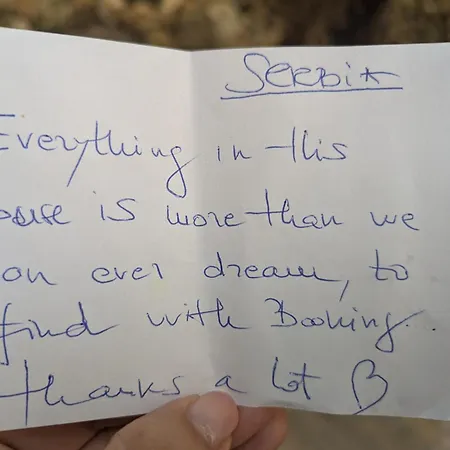 SERBIA
Everything in this
ouse is more than we
an ever dream, to
find with Booking.
thanks a lot